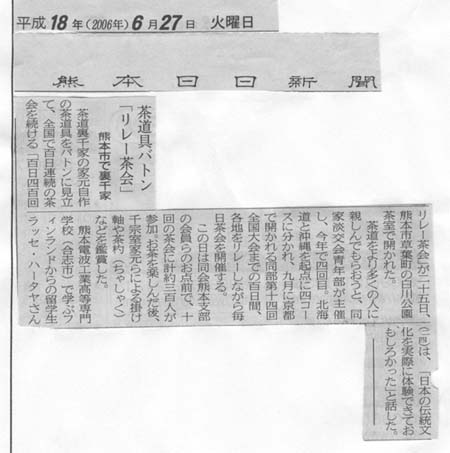 平成18年(2006年)6月27日 火曜日
熊本日日新聞
茶道具バトン
「リレー茶会」
熊本市で裏千家
茶道裏千家の家元自作
の茶道具をバトンに見立
て、全国で百日連続の茶
会を続ける「百日四百回
リレー茶会」が二十五日、
熊本市草葉町の白川公園
茶室で開かれた。
茶道をより多くの人に
親しんでもらおうと、同
家淡交会青年部が主催
し、今年で四回目。北海
道と沖縄を起点に四コー
スに分かれ、九月に京都
で開かれる同部第十四回
全国大会までの百日間、
各地をリレーしながら毎
日茶会を開催する。
この日は同会熊本支部
の会員らのお点前で、十
回の茶会に計約三百人が
参加。お茶を楽しんだ後、
千宗室家元らによる掛け
軸や茶杓(ちゃしゃく)
などを鑑賞した。
熊本電波工業高等専門
学校(合志市)で学ぶフ
ィンランドからの留学生
ラッセ・ハータヤさん
(二四)は、「日本の伝統文
化を実際に体験できてお
もしろかった」と話した。